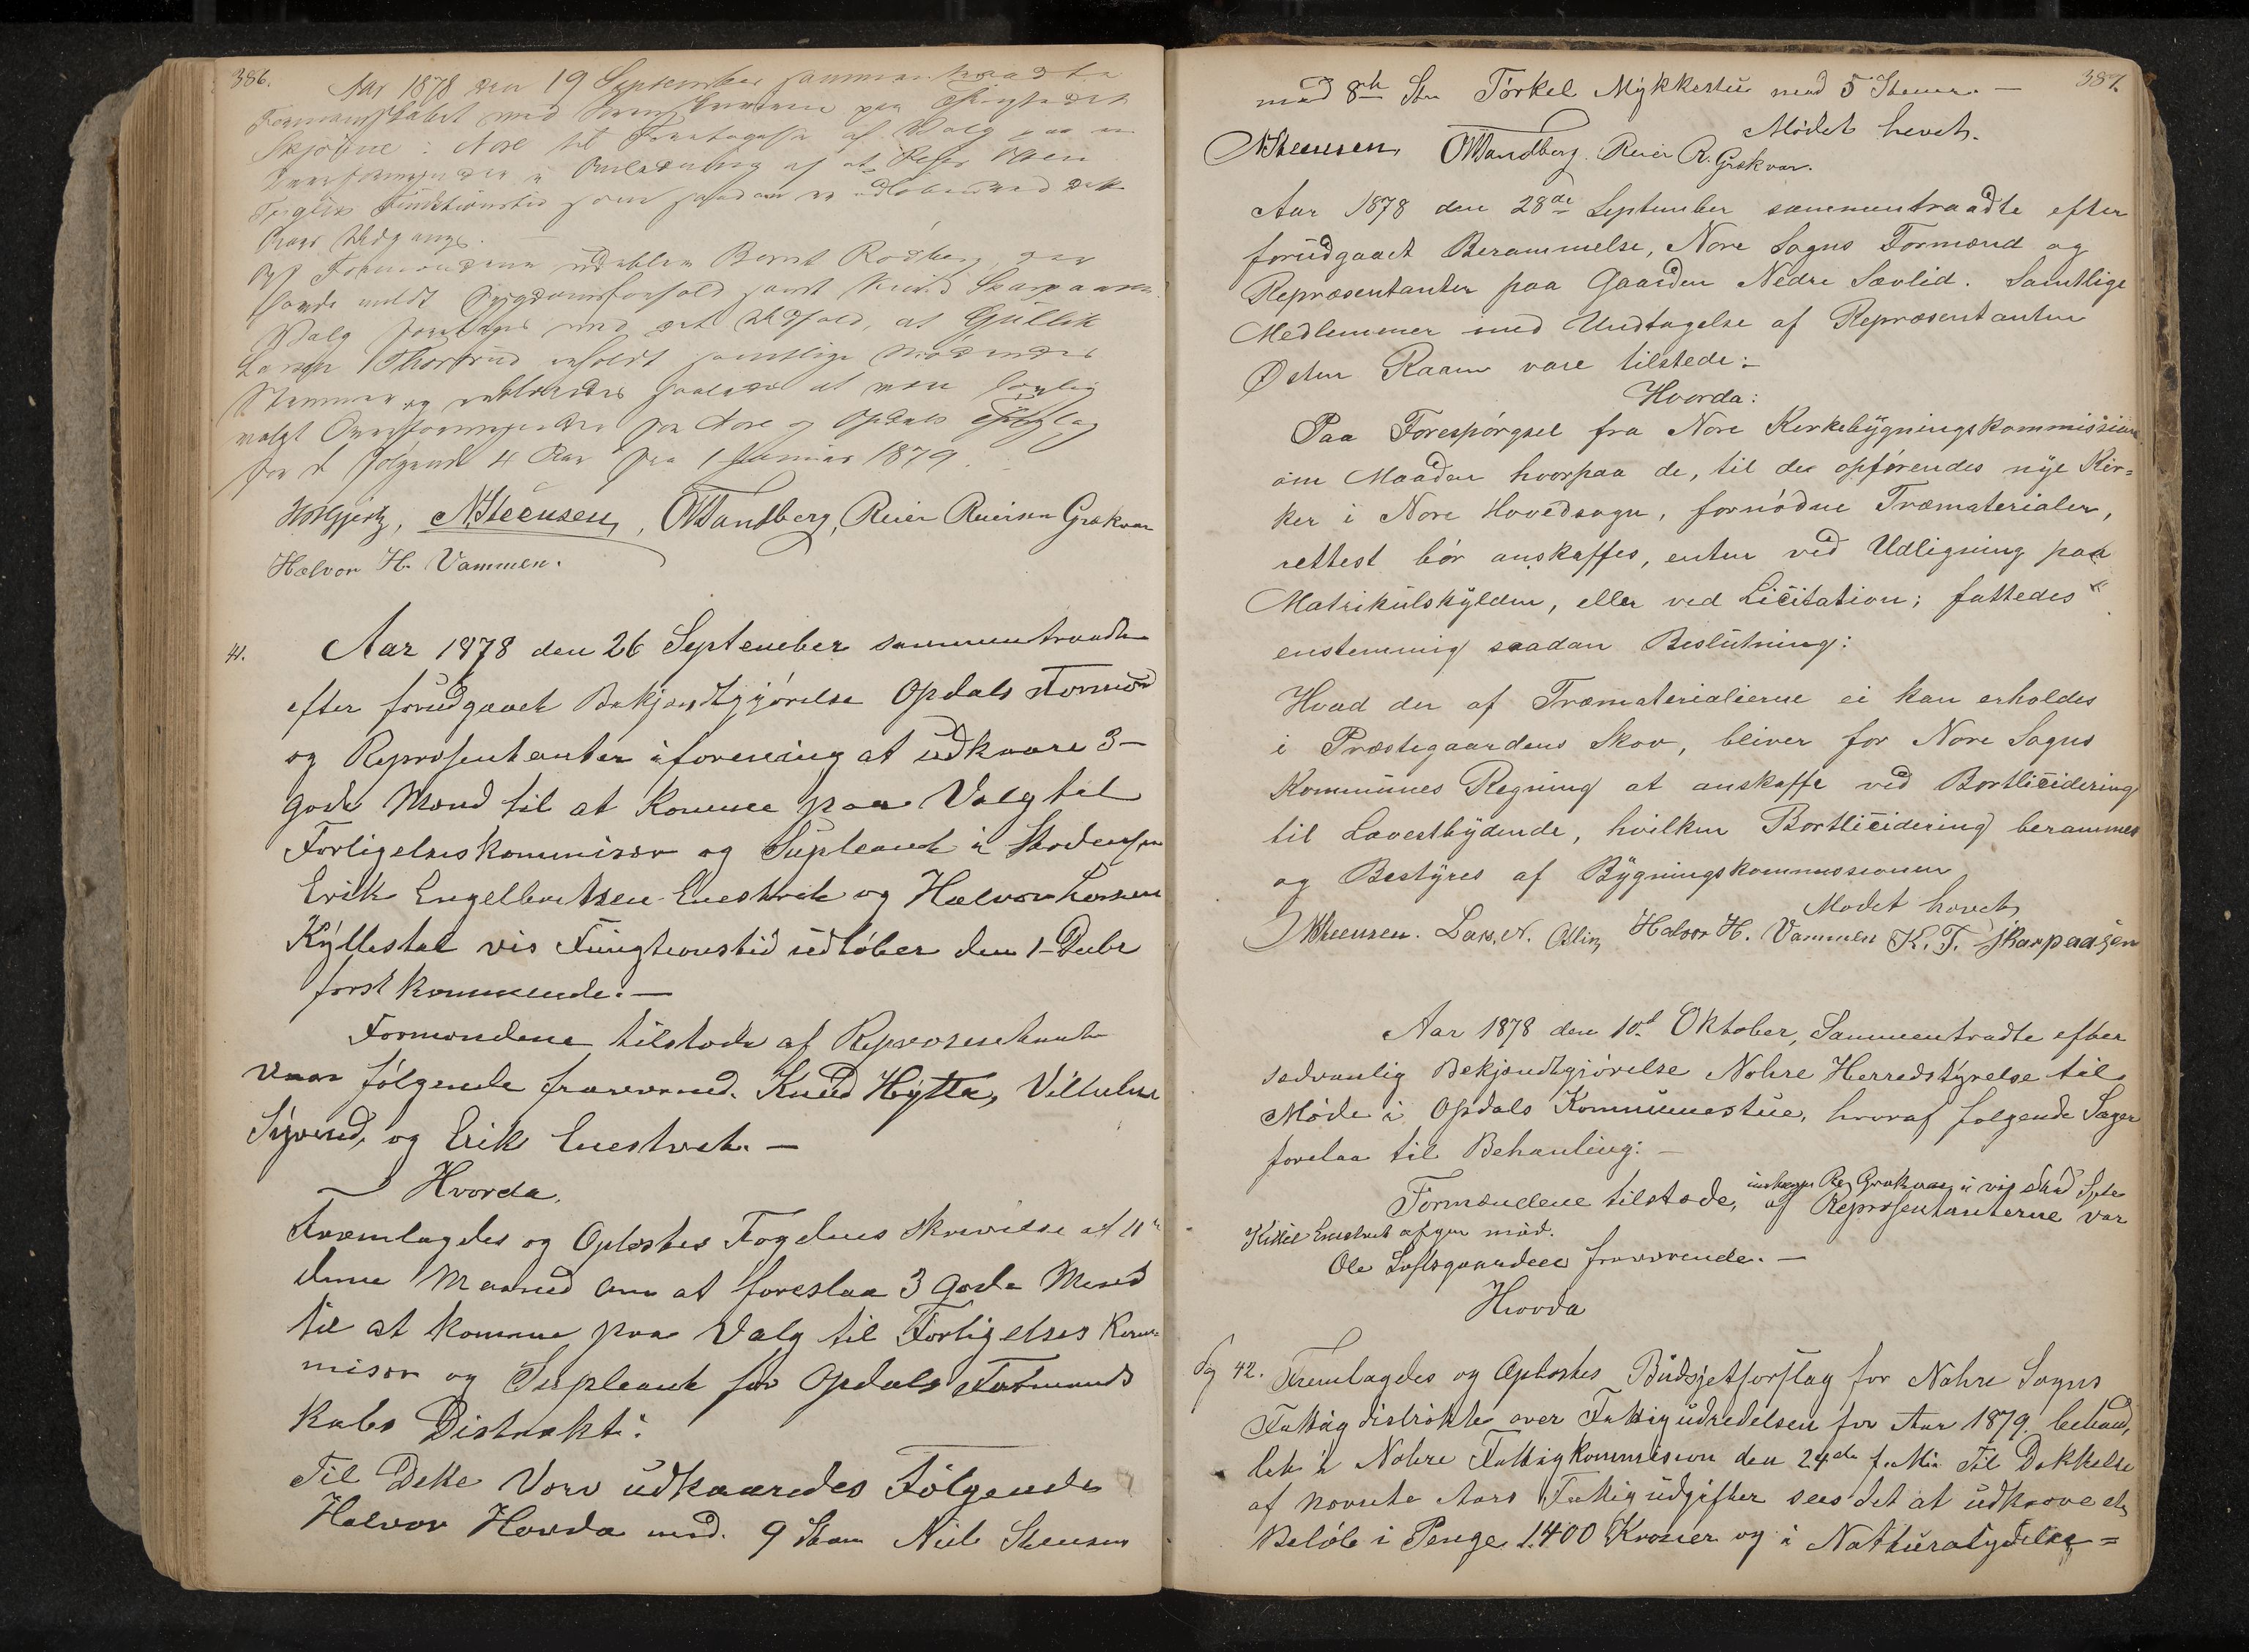 386.
Aar 1878 den 19 September sammentraadte
Formandskabet med
Skjønne i Nore til Foretagelse af Valg paa en
i Anledning af at
Funktionstid som saadan er udløben med dette
Aars Udgang.
Af Formændene udebleve Bernt Rødberg, der
havde meldt Sygdomsforfald samt Knud Skarpaasen.
Valg foretoges med det Udfald, at Gullik
Larsen Thorsrud erholdt samtlige Mødendes
Stemmer og erklæredes saaledes at være lovlig
valgt Overformynder for Nore og Opdals
for de følgende 4 Aar fra 1 Januar 1879.
NSteensen, OTandberg, Reier Reiersen Grøkvar
Halvor H. Vammen.
41.
Aar 1878 den 26 September sammentraadte
efter forudgaaet Bekjendtgjørelse Opdals Formænd
og Repræsentanter i forening at udkaare 3
gode Mænd til at komme paa Valg til
Forligelseskommisær og Supleant i Stedenfor
Erik Engelbretsen Enestvet og Halvor Larsen
Kyllestal vis Fungtionstid udløber den 1 Debr
først kommende.—
Formændene tilstede af Repræsentante
vaar følgende fraværend. Knud Hytta,
og Erik Enestvet.—
Hvorda.
Fremlagdes og Oplæstes Fogdens Skrivelse af 11te
denne Maaned om at foreslaa 3 gode Mænd
til at komme paa Valg til Forligelses Kom-
misær og Supleant for Opdals Formands
kabs Distrikt:
Til Dette Værv udkaaredes Følgende
Halvor Hovda med. 9 Stem Niels Steensen
387.
med 8te Ste Torkel Mykkestu med 5 Stemer.—
Mødet hevet.
NSteensen, OTandberg. Reier R. Grøkvar.
Aar 1878 den 28de September sammentraadte efter
forudgaaet Berammelse, Nore Sogns Formænd og
Repræsentanter paa Gaarden Nedre Sævlid. Samtlige
Medlemmer med Undtagelse af Repræsentanten
Østen Raaen vare tilstede:
Hvorda:
Paa Forespørgsel fra Nore Kirkebygningskommission
om Maaden hvorpaa de, til de opførendes nye Kir=
ker i Nore Hovedsogn, fornødne Træmaterialer,
rettest bør anskaffes, enten ved Udligning paa
Matrikulskylden, eller ved Licitation; fattedes
enstemmig saadan Beslutning:
Hvad der af Træmaterialierne ei kan erholdes
i Præstegaardens Skov, bliver for Nore Sogns
Kommunes Regning at anskaffe ved Bortlicidering
til Lavestbydende, hvilken Bortlicidering berammes
og Bestyres af Bygningskommissionen
Mødet hævet
NSteensen. Lars. N. Halvor H. Vammen K. T. Skarpaasen
Aar 1878 den 10d Oktober, Sammentradte efter
sædvanlig Bekjendtgjørelse Nohre Herredstyrelse til
Møde i Opdals Kommunestue, hvoraf følgende Sager
forelaa til Behanling:—
Formændene tilstæde, af Repræsentanterne var
Kittil Enestvet
Ole Loftsgaarden fraværende.—
Hvorda
Sg 42. Fremlagdes og Oplæstes Budsjetforslag for Nohre Sogns
Fattigdistrikte over Fattigudredelsen for Aar 1879. behand,
let i Nohre Fattigkommission den 24de f. M. Til Dækkelse
af nævnte Aars Fattigudgifter sees det at udkræve et
Beløb i Penge 1400 Kroner og i Naturalydelse=